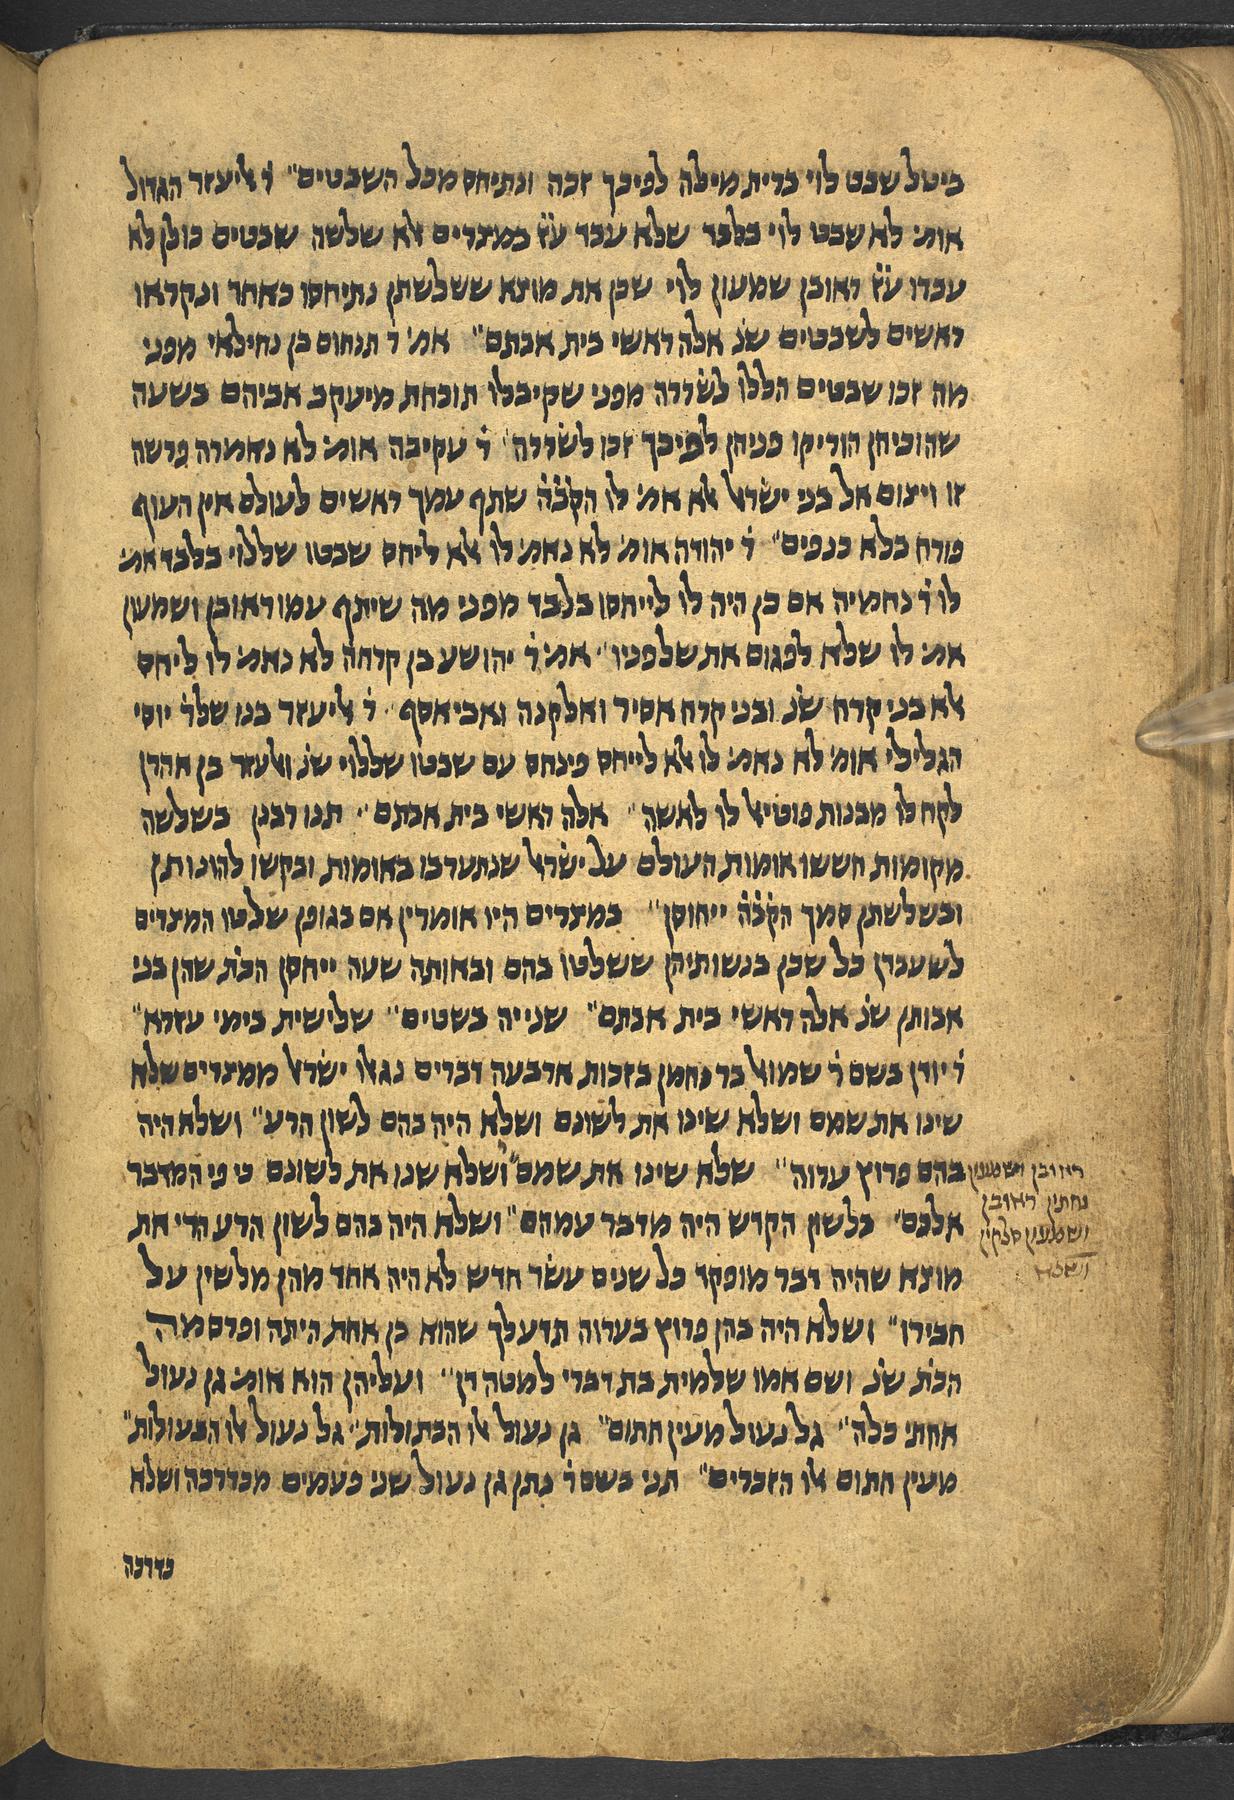 ביטל שבט לוי ברית מילה לפיכך זכה ונתיחס מכל השבטים" ר אליעזר הגדול
אומ' לא שבט לוי בלבד שלא עבד ע"ז במצרים אלא שלשה שבטים כולן לא
עבדו ע"ז ראובן שמעון לוי שכן את מוצא ששלשתן נתיחסו כאחד ונקראו
ראשים לשבטים שנ אלה ראשי בית אבתם" אמ' ר תנחום בן נחילאי מפני
מה זכו שבטים הללו לשררה מפני שקיבלו תוכחת מיעקב אביהם בשעה
שהוכיחן הוריקו פניהן לפיכך זכו לשררה' ר עקיבה אומ' לא נאמרה פרשה
זו ויצום אל בני ישראל אלא אמ' לו הקב"ה שתף עמך ראשים לעולם אין העוף
פורח בלא כנפים" ר יהודה אומ' לא נאמ' לו אלא ליחס שבטו שללוי בלבד אמ'
לו ר נחמיה אם כן היה לו לייחסו בלבד מפני מה שיתף עמו ראובן ושמעון
אמ' לו שלא לפגום את שלפניו" אמ' ר יהושע בן קרחה לא נאמ' לו ליחס
אלא בני קרח שנ ובני קרח אסיר ואלקנה ואביאסף" ר אליעזר בנו שלר יוסי
הגלילי אומ' לא נאמ' לו אלא לייחס פינחס עם שבטו שללוי שנ ואלעזר בן אהרן
לקח לו מבנות פוטיאל לו לאשה" אלה ראשי בית אבתם" תנו רבנן בשלשה
מקומות חששו אומות העולם על ישראל שנתערבו באומות ובקשו להונותן
ובשלשתן סמך הקב"ה ייחוסן" במצרים היו אומרין אם בגופן שלטו המצרים
לשעבדן כל שכן בנשותיהן ששלטו בהם ובאותה שעה ייחסן הכת שהן בני
אבותן שנ אלה ראשי בית אבתם" שנייה בשטים" שלישית בימי עזרא"
ר יודן בשם ר שמואל בר נחמן בזכות ארבעה דברים נגאלו ישראל ממצרים שלא
שינו את שמם ושלא שינו את לשונם ושלא היה בהם לשון הרע" ושלא היה
בהם פרוץ ערוה" שלא שינו את שמם" ושלא שנו את לשונם כי פי המדבר
אלכם' בלשון הקדש היה מדבר עמהם" ושלא היה בהם לשון הרע הרי את
מוצא שהיה דבר מופקד כל שנים עשר חדש לא היה אחד מהן מלשין על
חבירו" ושלא היה בהן פרוץ בערוה תדע לך שהוא כן אחת היתה ופרסמה
הכת שנ ושם אמו שלמית בת דברי למטה דן" ועליהן הוא אומ' גן נעול
אחתי כלה" גל נעול מעין חתום" גן נעול אלו הבתולות" גל נעול אלו הבעולות"
מעין חתום אלו הזכרים" תני בשם ר נתן גן נעול שני פעמים מכדרכה ושלא
כדרכה
ראובן ושמעון
נחתין ראובן
ושמעון סלקין
ושלא